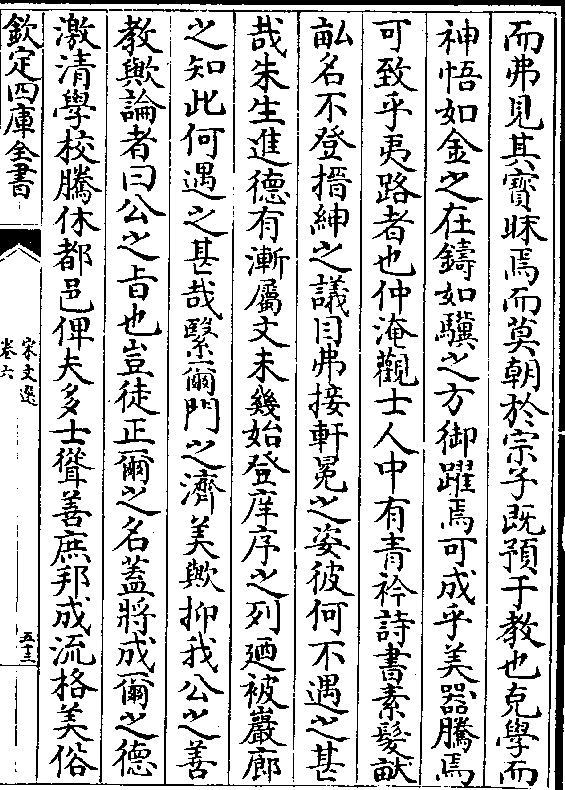 而弗見其寳昧焉而莫朝於宗子既預于教也克學而
神悟如金之在鑄如驥之方御躍焉可成乎美器騰焉
可致乎夷路者也仲淹觀士人中有青衿詩書素髮畎
畆名不登搢紳之議目弗接軒冕之姿彼何不遇之甚
哉朱生進德有漸屬文未幾始登庠序之列廼被巖廊
之知此何遇之甚哉繄爾門之濟美歟抑我公之善
教歟論者曰公之㫖也豈徒正爾之名蓋將成爾之德
激清學校騰休都邑俾夫多士聳善庶邦成流格美俗
欽定四庫全書
宋文選
卷六
五十三